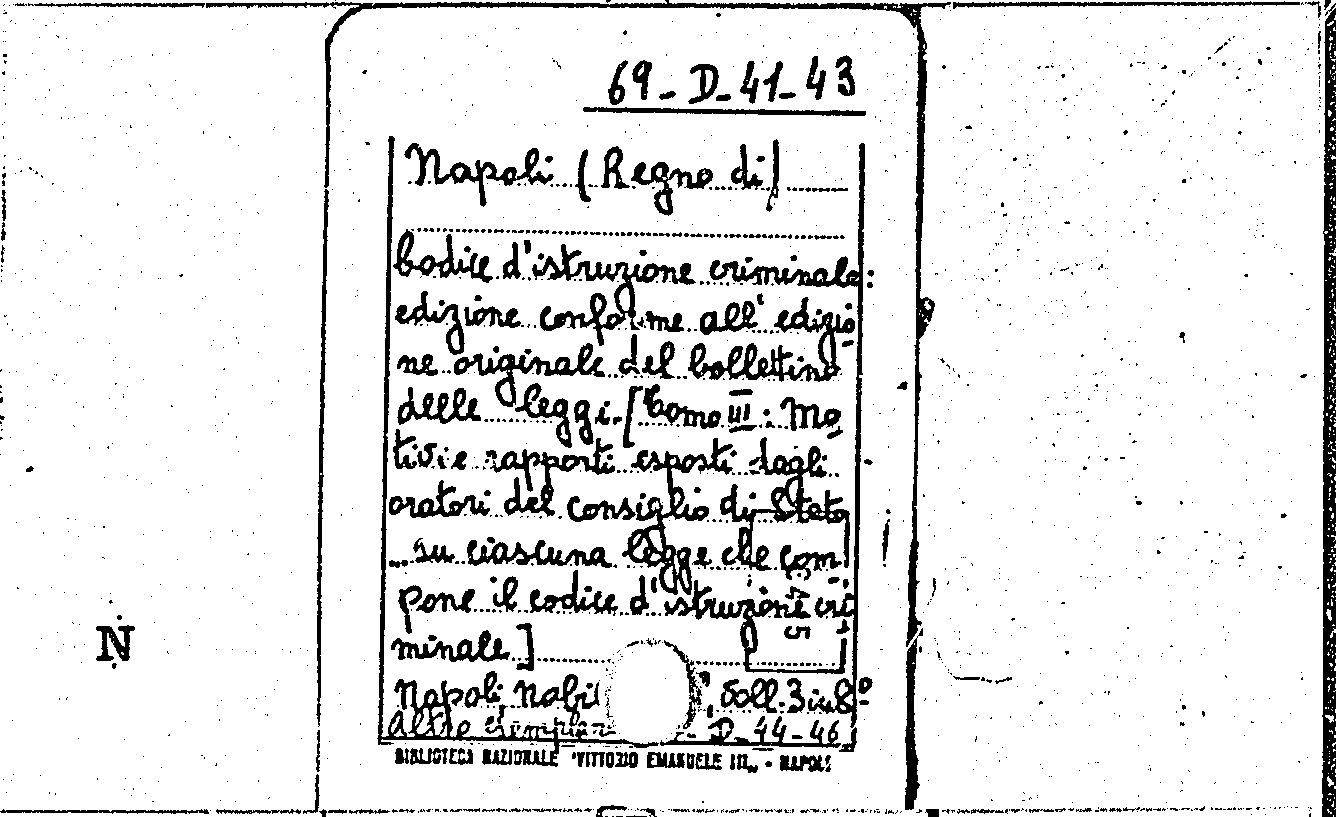 69-D-41-43
Napoli (Regno di)
Codice d'istruzione criminale:
edizione conforme all'edizio-
ne originale del bollettino
delle leggi. [Tomo III: Mo-
tivi e rapporti esposti dagli
oratori del Consiglio di Stato
... su ciascuna legge che com-
pone il codice d'istruzione cri-
minale]
N
Napoli, Nobil , voll. 3 in 8º
Altro - D-44-46
BIBLIOTECA NAZIONALE "VITTORIO EMANUELE III" - NAPOLI